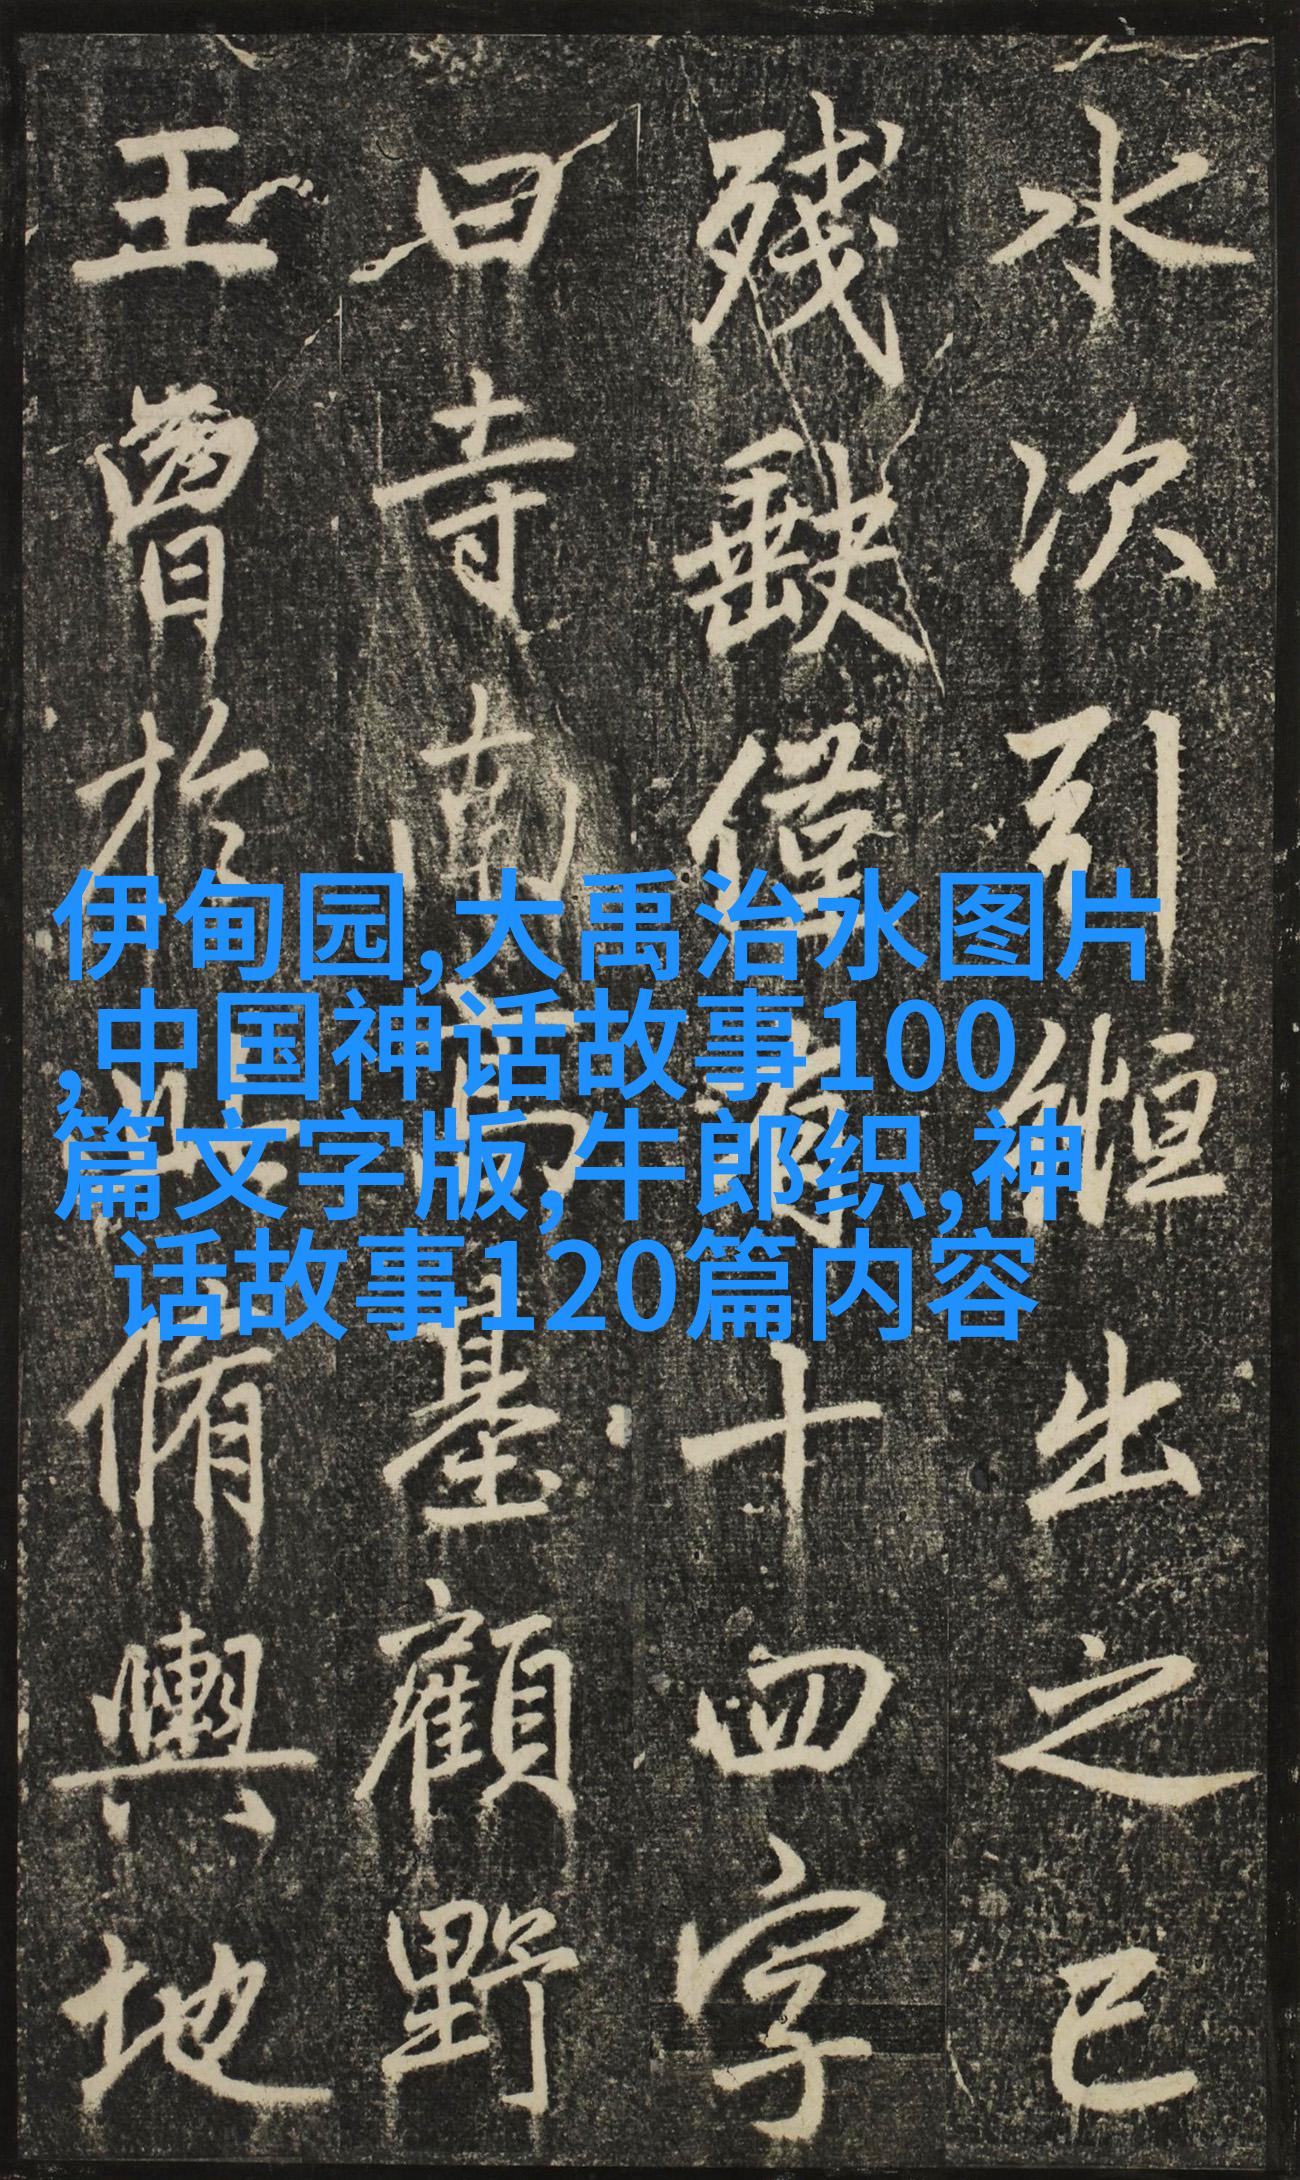 水次引緪出之已
残缺僅有十四字
曰寺南高基顧野
王曾於此脩輿地
伊甸园,大禹治水图片
,中国神话故事100
篇文字版,牛郎织,神
话故事120篇内容